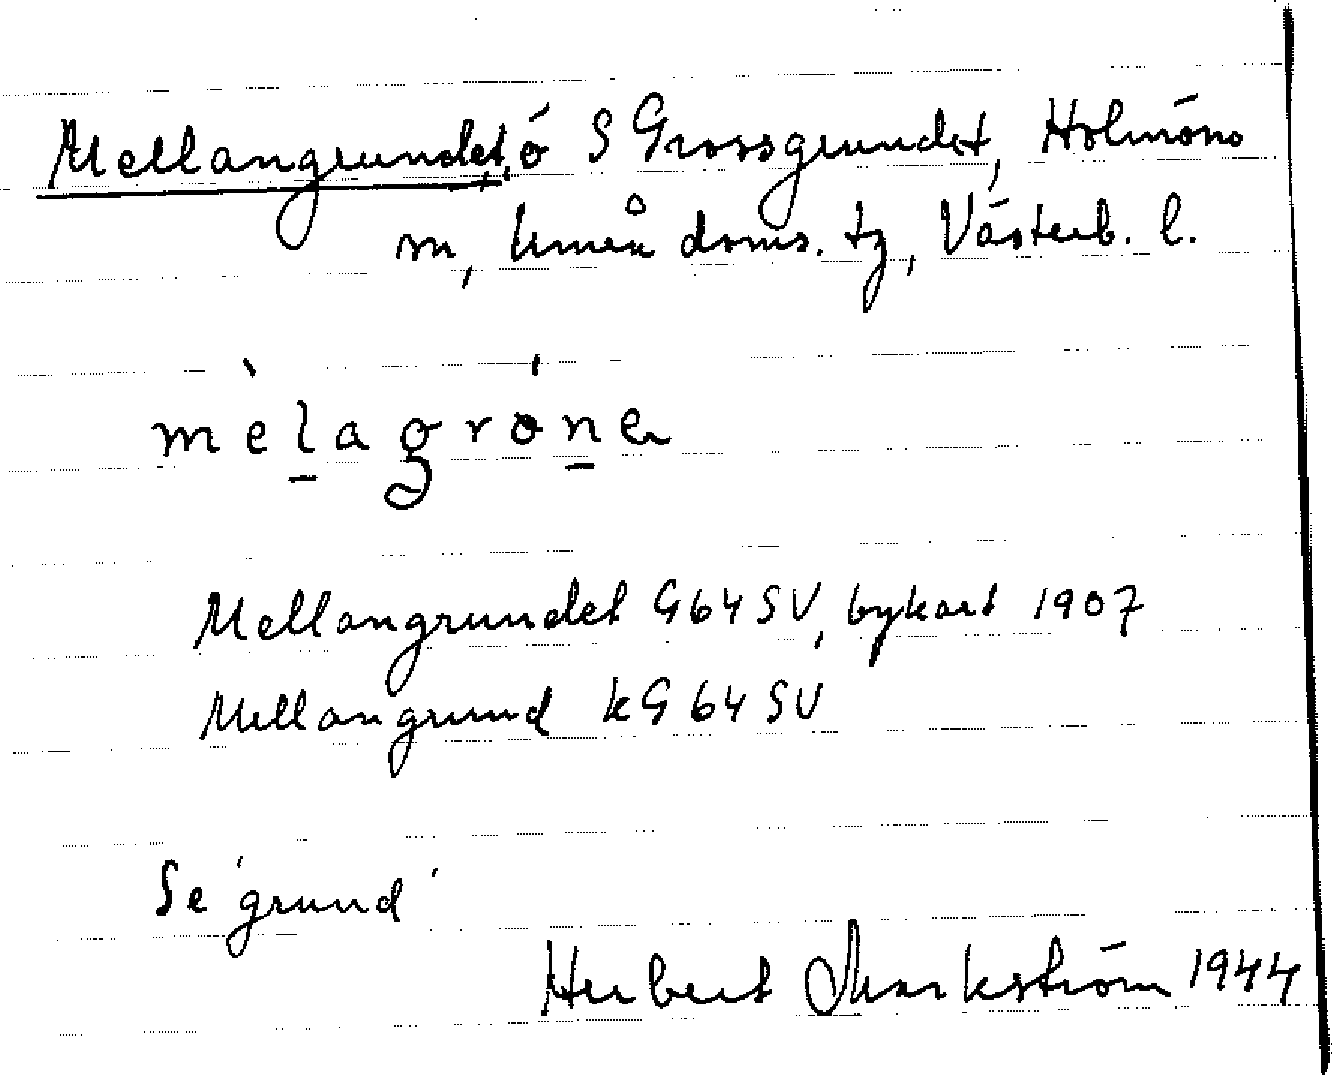 Mellangrundet, ö S Grossgrundet, Holmöns
sn, Umeå doms. tg, Västerb. l.
mèlagróne
Mellangrundet G64SV, bykart 1907
Mellangrund kG64SV
Se 'grund'
Herbert Markström 1944